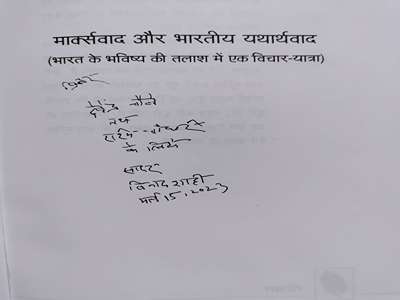 मार्क्सवाद और भारतीय यथार्थवाद
(भारत के भविष्य की तलाश में एक विचार-यात्रा)
देवेन्द्र चौबे
के लिये
सादर
विनोद शाही
मार्च 15, 2023